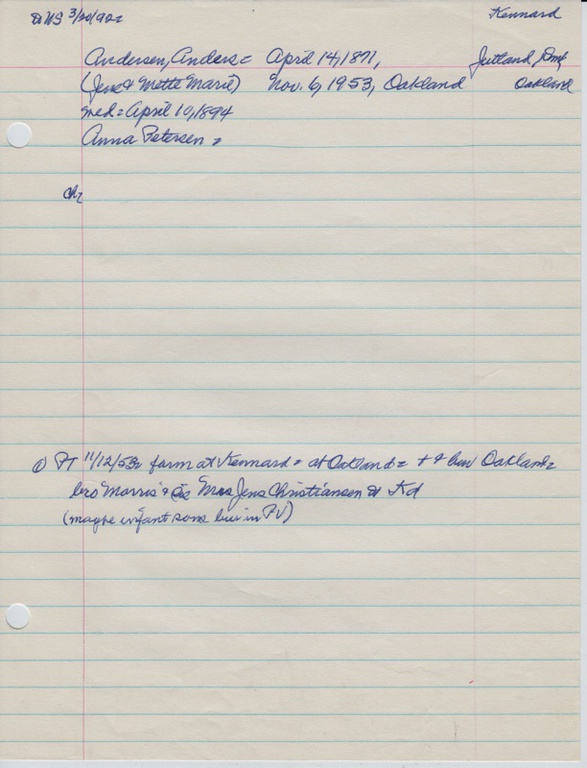 3/20/92= Kennard
Andersen, Anders = April 14, 1871, Jutland, Dmk
(Jens & Mette Marie) Nov. 6, 1953, Oakland Oakland
med = April 10, 1894
Anna Petersen =
ch,
① PT 11/12/53= farm at Kennard = at Oakland = + & bur Oakland=
bro Morris & sis Mrs Jens Christiansen at Kd
(maybe infant sons bur in PV)